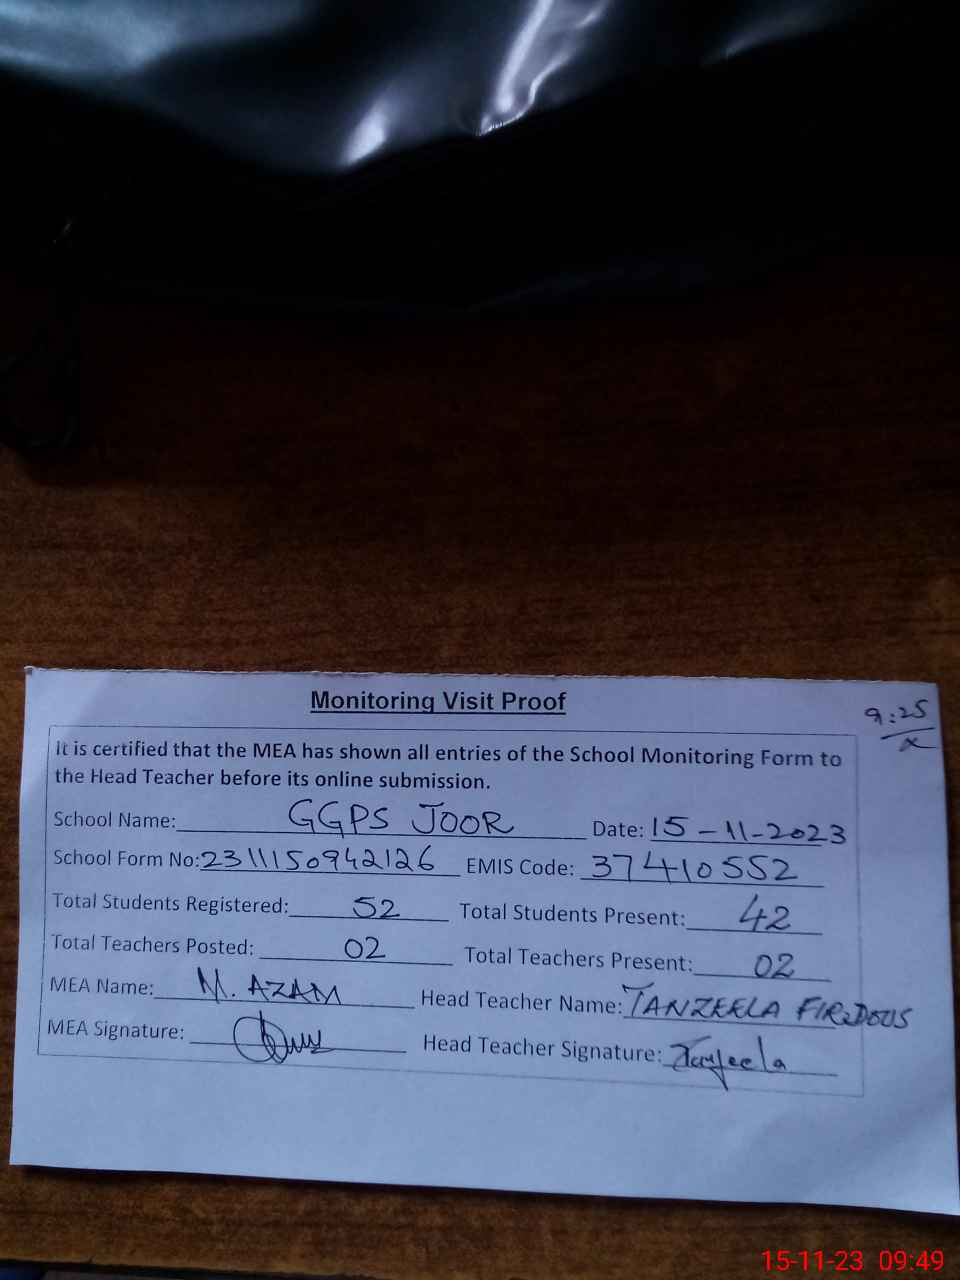 Monitoring Visit Proof
9:25
It is certified that the MEA has shown all entries of the School Monitoring Form to
the Head Teacher before its online submission.
School Name: GGPS JOOR Date: 15-11-2023
School Form No: 2311150942126 EMIS Code: 37410552
Total Students Registered: 52 Total Students Present: 42
Total Teachers Posted: 02 Total Teachers Present: 02
MEA Name: M. AZAM Head Teacher Name: TANZEELA FIRDOUS
MEA Signature: Head Teacher Signature: Tanzeela
15-11-23 09:49